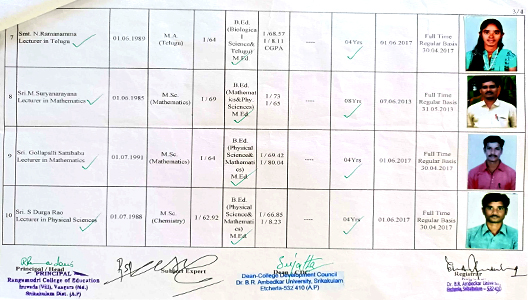 3/4
7 Smt. N.Ramanamma
Lecturer in Telugu 01.06.1989 M.A.
(Telugu) 1/64 B.Ed.
(Biologica
l
Science&
Telugu)
M.Ed 1/68.57
1/8.11
CGPA ---- 04Yrs 01.06.2017 Full Time
Regular Basis
30.04.2017
8 Sri M.Suryanarayana
Lecturer in Mathematics 01.06.1985 M.Sc.
(Mathematics) 1/69 B.Ed.
(Mathemat
ics&Phy.
Sciences)
M.Ed 1/73
1/65 ---- 08Yrs 07.06.2013 Full Time
Regular Basis
31.05.2013
9 Sri Gollapalli Sambabu
Lecturer in Mathematics 01.07.1991 M.Sc.
(Mathematics) 1/64 B.Ed.
(Physical
Science&
Mathemati
cs)
M.Ed 1/69.42
1/80.04 ---- 04Yrs 01.06.2017 Full Time
Regular Basis
30.04.2017
10 Sri. S Durga Rao
Lecturer in Physical Sciences 01.07.1988 M.Sc.
(Chemistry) 1/62.92 B.Ed.
(Physical
Science&
Mathemati
cs)
M.Ed 1/66.85
1/8.23 ---- 04Yrs 01.06.2017 Full Time
Regular Basis
30.04.2017
Principal / Head
PRINCIPAL
Rangamani College of Education
Srikakulam Dist. (A.P)
Subject Expert
Dean / CDC
Dean-College Development Council
Dr. B.R. Ambedkar University, Srikakulam
Etcherla-532 410 (A.P)
Registrar
Dr. B.R. Ambedkar University